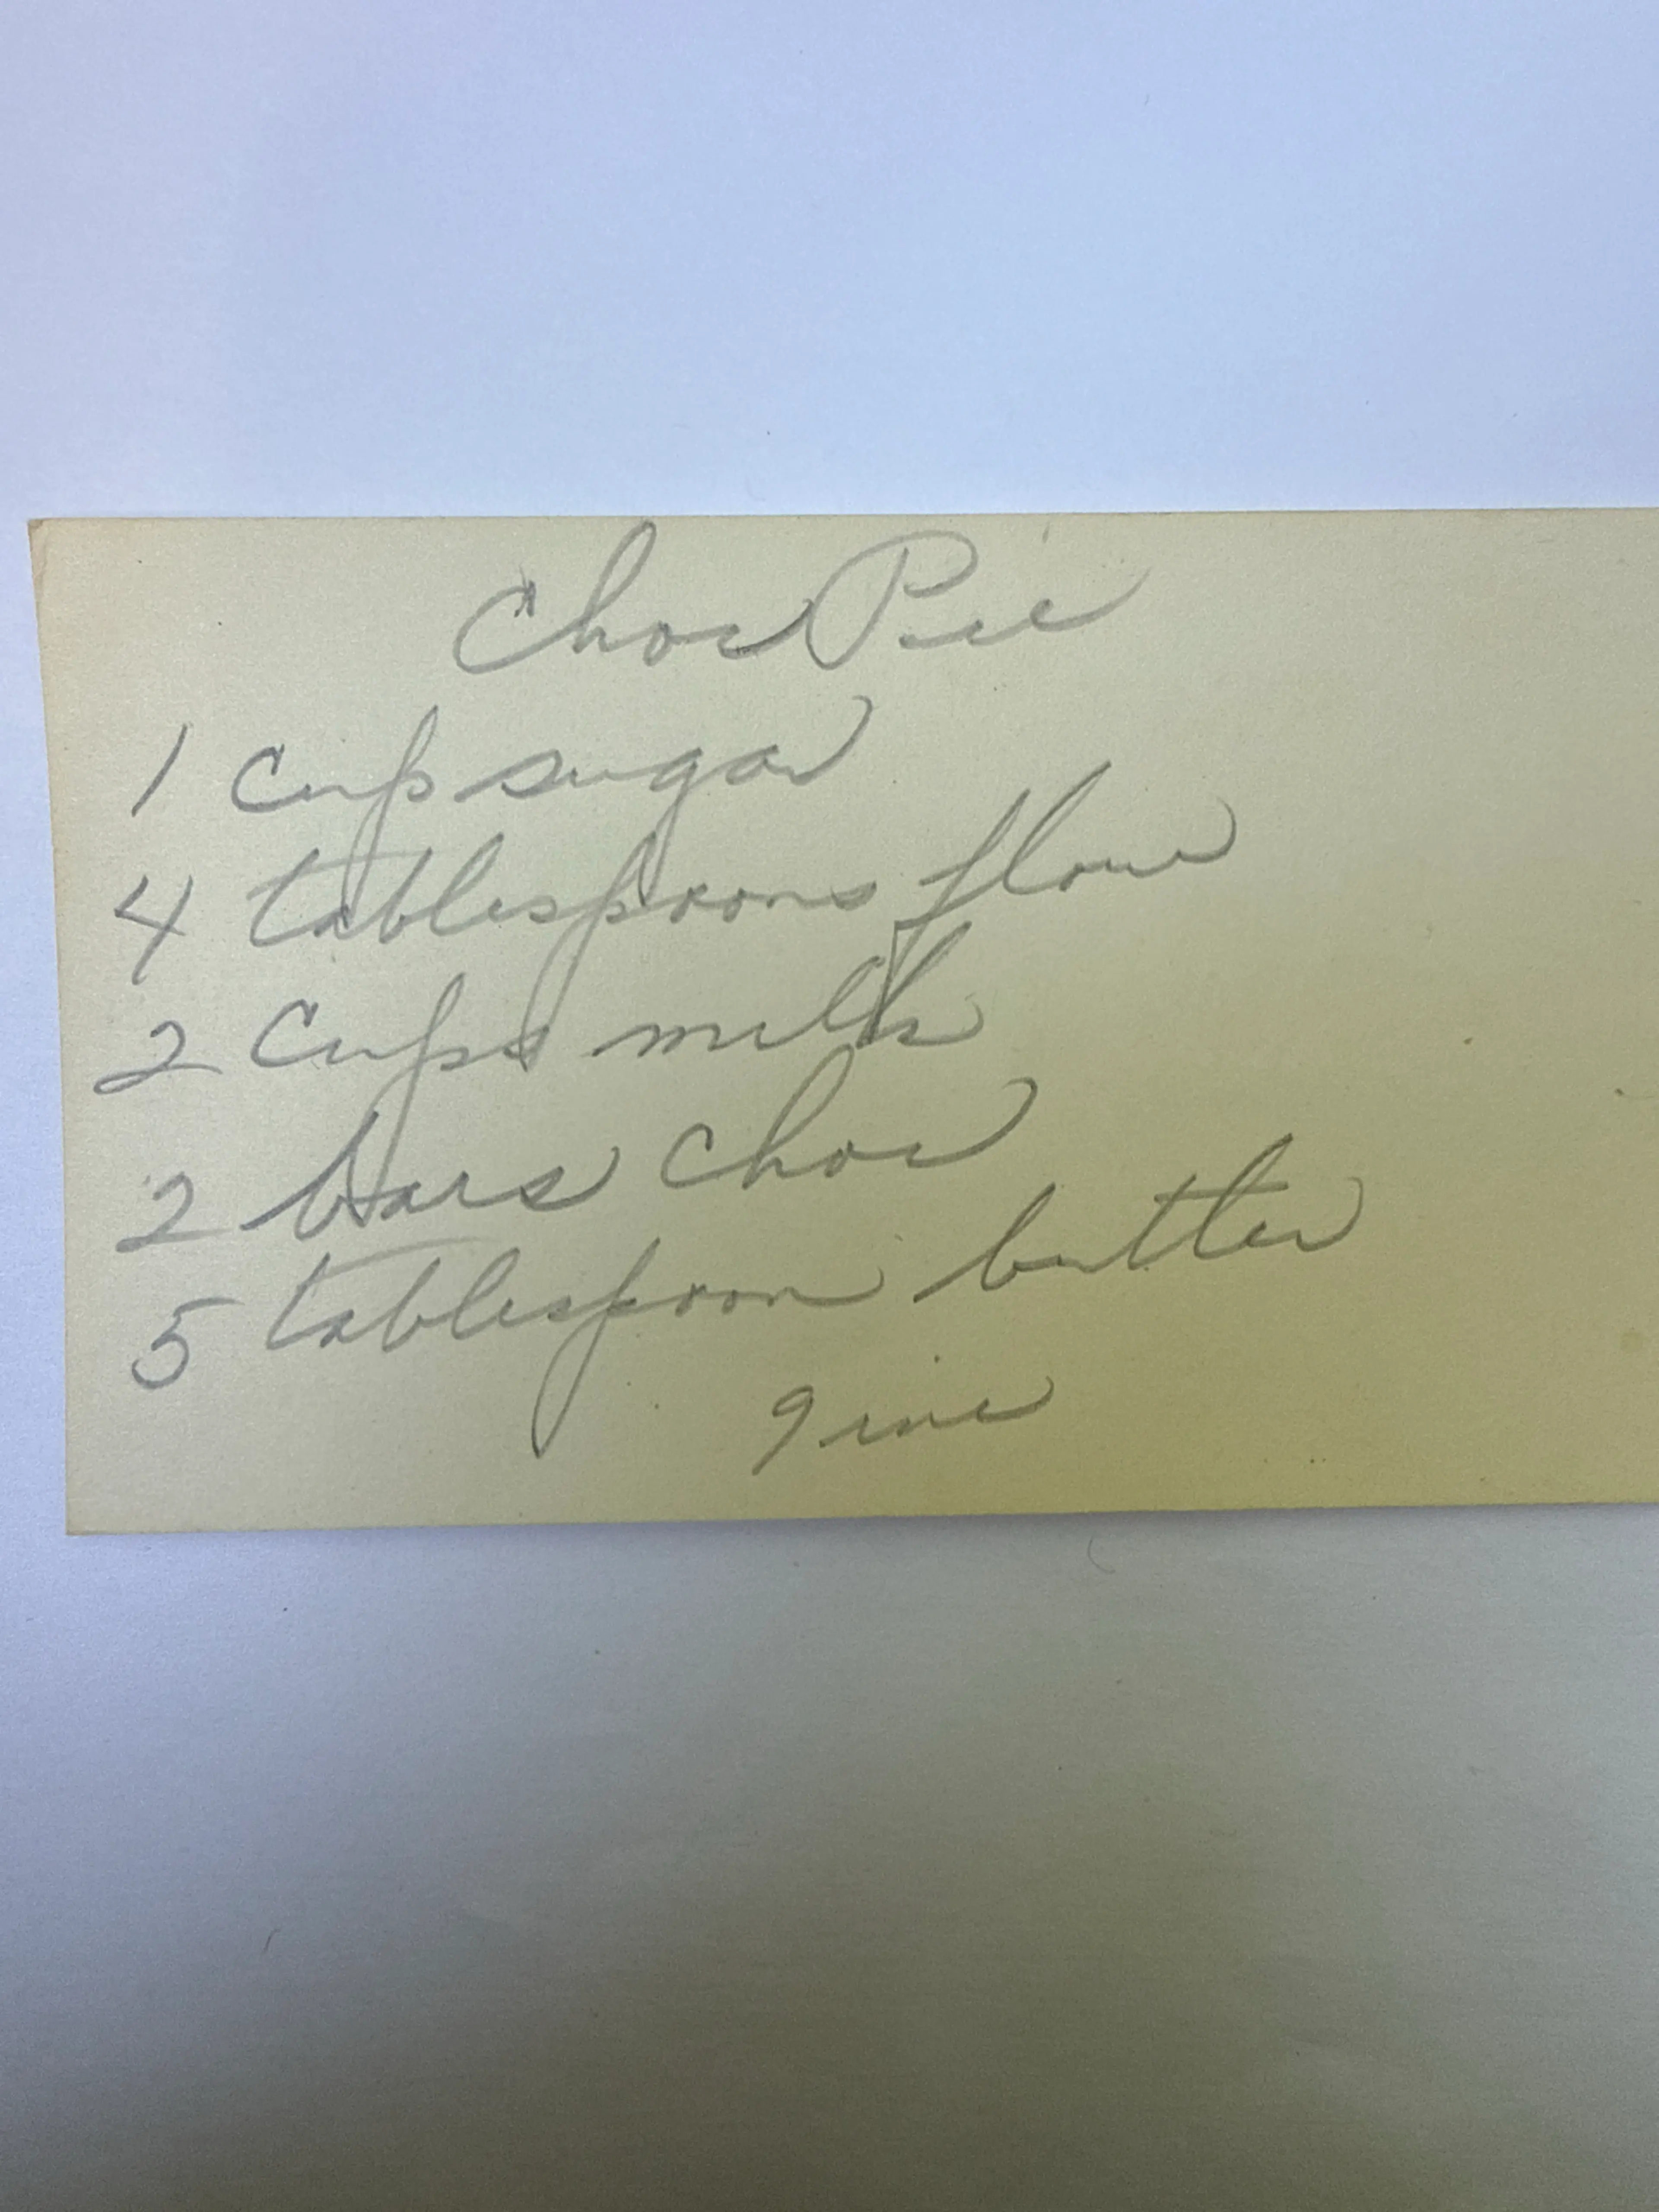 Choc Pie
1 cup sugar
4 tablespoons flour
2 cups milk
2 bars choc
5 tablespoon butter
9 ine